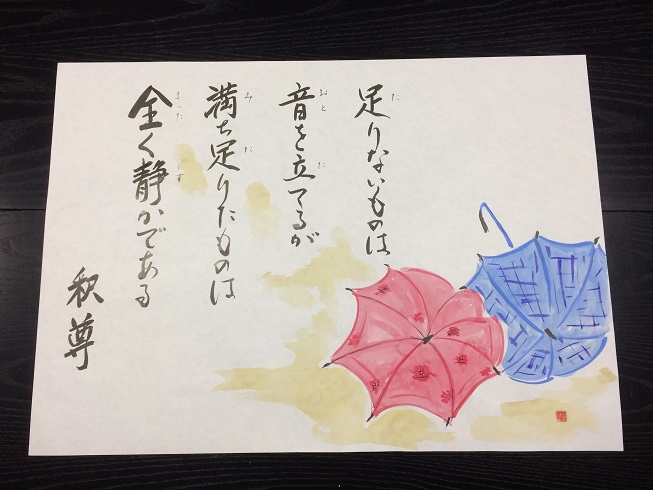 足りないものは、
音を立てるが
満ち足りたものは
全く静かである
釈尊